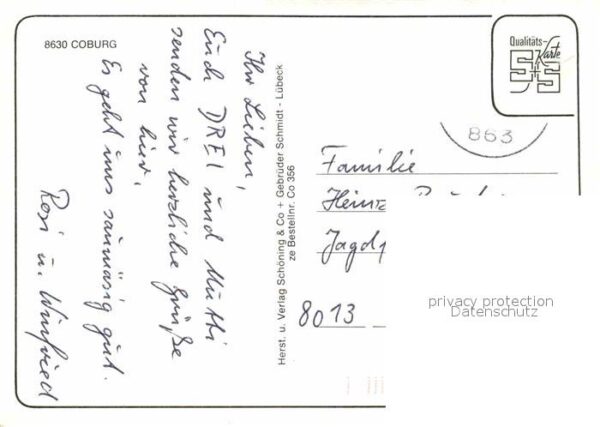 8630 COBURG
Ihr Lieben,
Euch DREI und Mutti
senden wir herzliche Grüße
von hier.
Es geht uns saumäßig gut.
Rosi u. Winfried
Herst. u. Verlag Schöning & Co + Gebrüder Schmidt - Lübeck
ze Bestellnr. Co 356
Qualitäts-
Karte
S+S
863
Familie
Heinz
Jagd
8013
privacy protection
Datenschutz